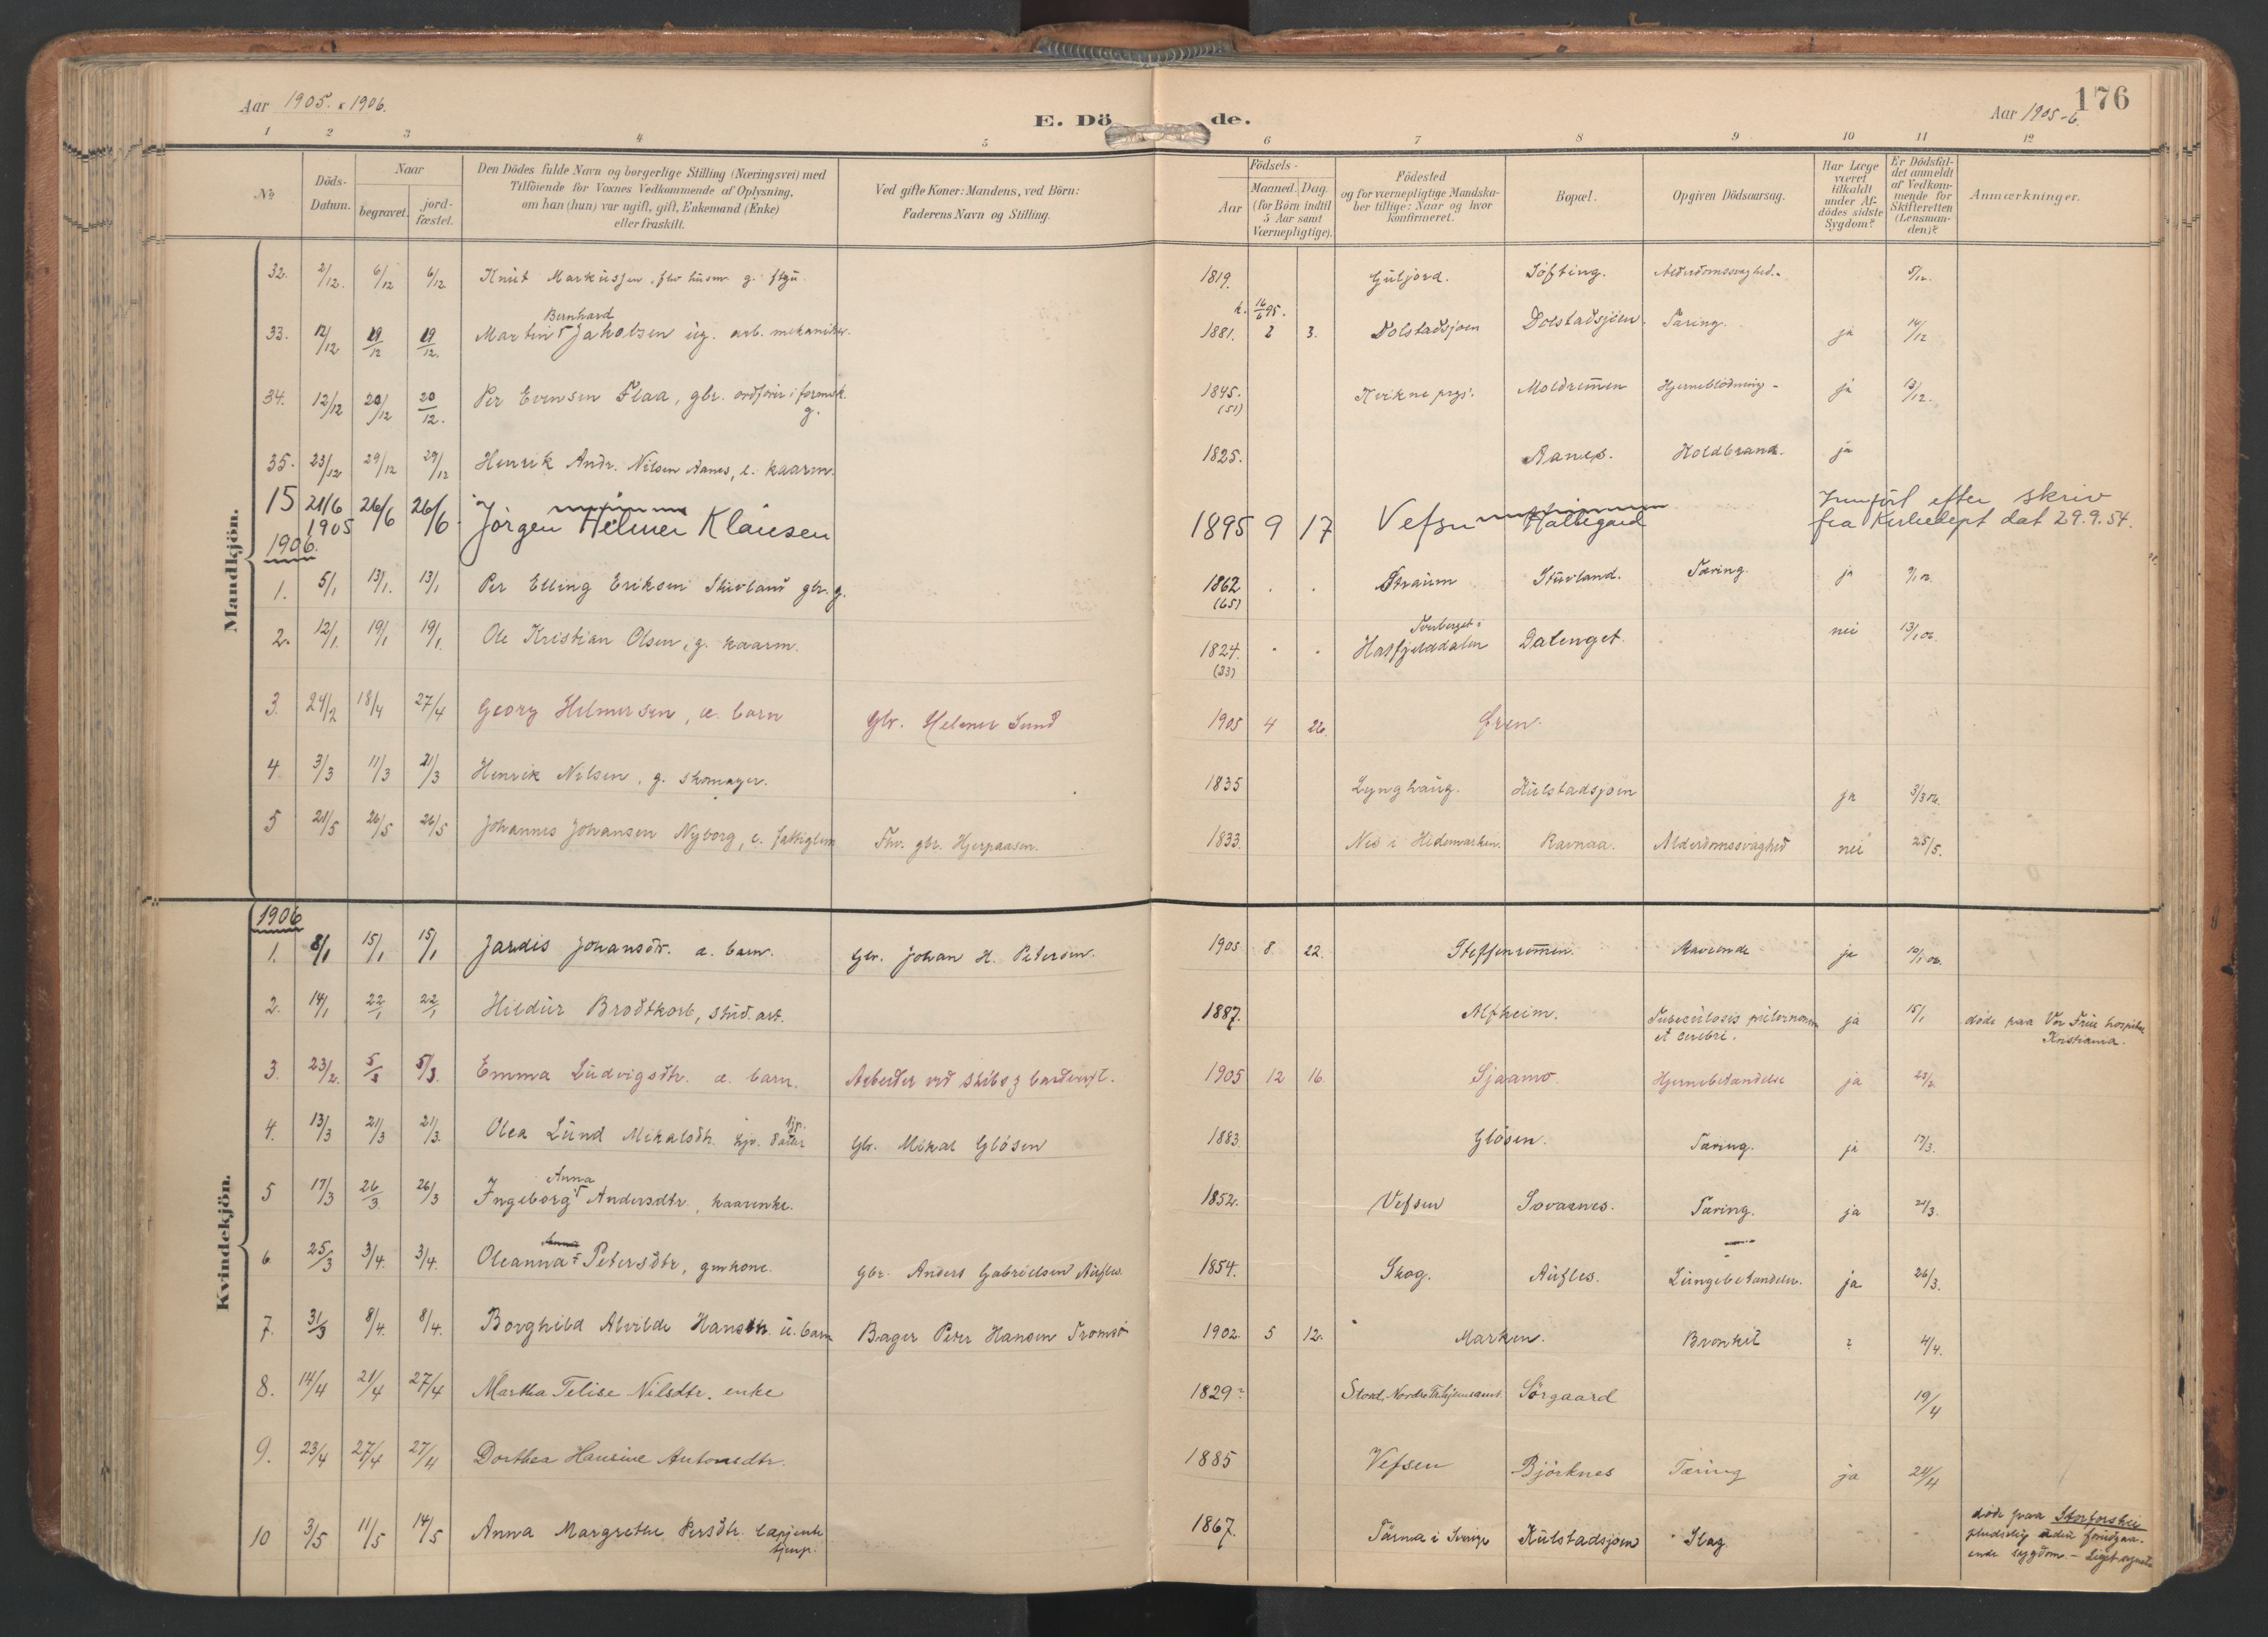 Aar 1905. & 1906.
E. Döde.
Aar 1905-6.
176
1 2 3 4 5 6 7 8 9 10 11 12
No
Döds-Datum.
Naar
begravet.
jord-fæstet.
Den Dödes fulde Navn og borgerlige Stilling (Næringsvei) med
Tilföiende for Voxnes Vedkommende af Oplysning,
om han (hun) var ugift, gift, Enkemand (Enke)
eller fraskilt.
Ved gifte Koner: Mandens, ved Börn:
Faderens Navn og Stilling.
Födsels-
Aar
Maaned. Dag.
(for Börn indtil
5 Aar samt
Værnepligtige).
Födested
og for værnepligtige Mandska-
ber tillige: Naar og hvor
konfirmeret.
Bopæl.
Opgiven Dödsaarsag.
Har Læge
været
tilkaldt
under Af-
dödes sidste
Sygdom?
Er Dödsfal-
det anmeldt
af Vedkom-
mende for
Skifteretten
(Lensman-
den)?
Anmærkninger.
Mandkjön.
32. 2/12. 6/12 6/12. Knut Markussen, fhv husm. g. 1819. Guljord. Söfting. Alderdomssvaghed. 5/12.
Bernhard
k. 16/6 95.
33. 12/12 19/12 19/12. Martin Jakobsen ug. arb. mekaniker. 1881. 2 3. Dolstadsjøen Dolstadsjöen. Tæring. ja 14/12
34. 12/12 20/12 20/12. Per Evensen Flaa, gbr. ordfører i formsk. g. 1845. (51) Kvikne prgj. Moldremen Hjerneblödning - ja 13/12.
35. 23/12 29/12 29/12 Henrik Andr. Nilsen Aanes, e. kaarm. 1825. Aanes. Koldbrand. ja
15 21/6 1905 26/6 26/6 Jörgen Helmer Klausen 1895 9 17 Vefsn Halsegard Innfört efter skriv
fra Kirkedept dat 29.9.54.
1906.
1. 5/1 13/1. 13/1 Per Elling Eriksen Stuvland gbr. g. 1862 (65) . . Straum Stuvland. Tæring. ja 9/1 06.
2. 12/1. 19/1 19/1. Ole Kristian Olsen, g. kaarm. 1824. (33) . . Tverberget i Hatfjelddalen Dalenget. nei 13/1 06.
3. 24/2 18/4 27/4 Georg Helmersen, æ. barn Gbr. Helmer Lund 1905 4 26. Øren.
4 3/3 11/3 21/3 Henrik Nilsen, g. skomager. 1835 Lynghaug. Kulstadsjøen ja 3/3 06.
5 21/5 26/5 26/5 Johannes Johansen Nyborg, e. fattiglem Fhv. gbr. Hjerpaasen. 1833. Nes i Hedemarken. Ravnaa. Alderdomssvaghed nei 25/5.
Kvindekjön.
1906
1. 8/1 15/1 15/1 Jardis Johansdtr. æ. barn. Gbr. Johan H. Petersen. 1905 8 22. Steffenremen. Maveonde ja 10/1 06.
2. 14/1 22/1 22/1 Hildur Brodtkorb, stud. art. 1887. Alfheim. Tuberculosis pulmonum
et cerebri. ja 15/1 döde paa Vor Frue hospital
Kristiania.
3. 23/2. 5/3 5/3. Emma Ludvigsdtr. æ. barn. Arbeider ved skibs & baadbyg. 1905 12 16. Sjaamo. Hjernebetændelse ja 23/2
4. 13/3 21/3 21/3. Olea Lund Mikalsdtr. gbr. datter Gbr. Mikal Glösen 1883. Glösen. Tæring. ja 17/3.
Anna
5 17/3 26/3. 26/3 Ingeborg Andersdtr., kaarenke. 1852. Vefsen Sovasnes. Tæring. ja 21/3.
Anna
6 25/3 3/4. 3/4. Oleanna Petersdtr, gmkone. Gbr. Anders Gabrielsen Aufles. 1854. Skog. Aufles. Lungebetændelse. ja 26/3.
7. 31/3 8/4. 8/4. Borghild Alvilde Hansdtr. u. barn Bager Peter Hansen Tromsö 1902. 5 12. Marken. Bronkit ? 4/4.
8. 14/4 21/4 27/4 Martha Telise Nilsdtr. enke 1829? Stod, Nordre Trhjemsamt. Sörgaard 19/4
9. 23/4 27/4 27/4 Dorthea Hansine Antonsdtr. 1885 Vefsen Björknes Tæring ja 24/4
10 3/5 11/5 14/5 Anna Margrethe Persdtr. lapjente 1867. Tärna i Sverige Kulstadsjøen Slag - döde paa Storforshei
pludselig uden foregaa-
ende sygdom. -